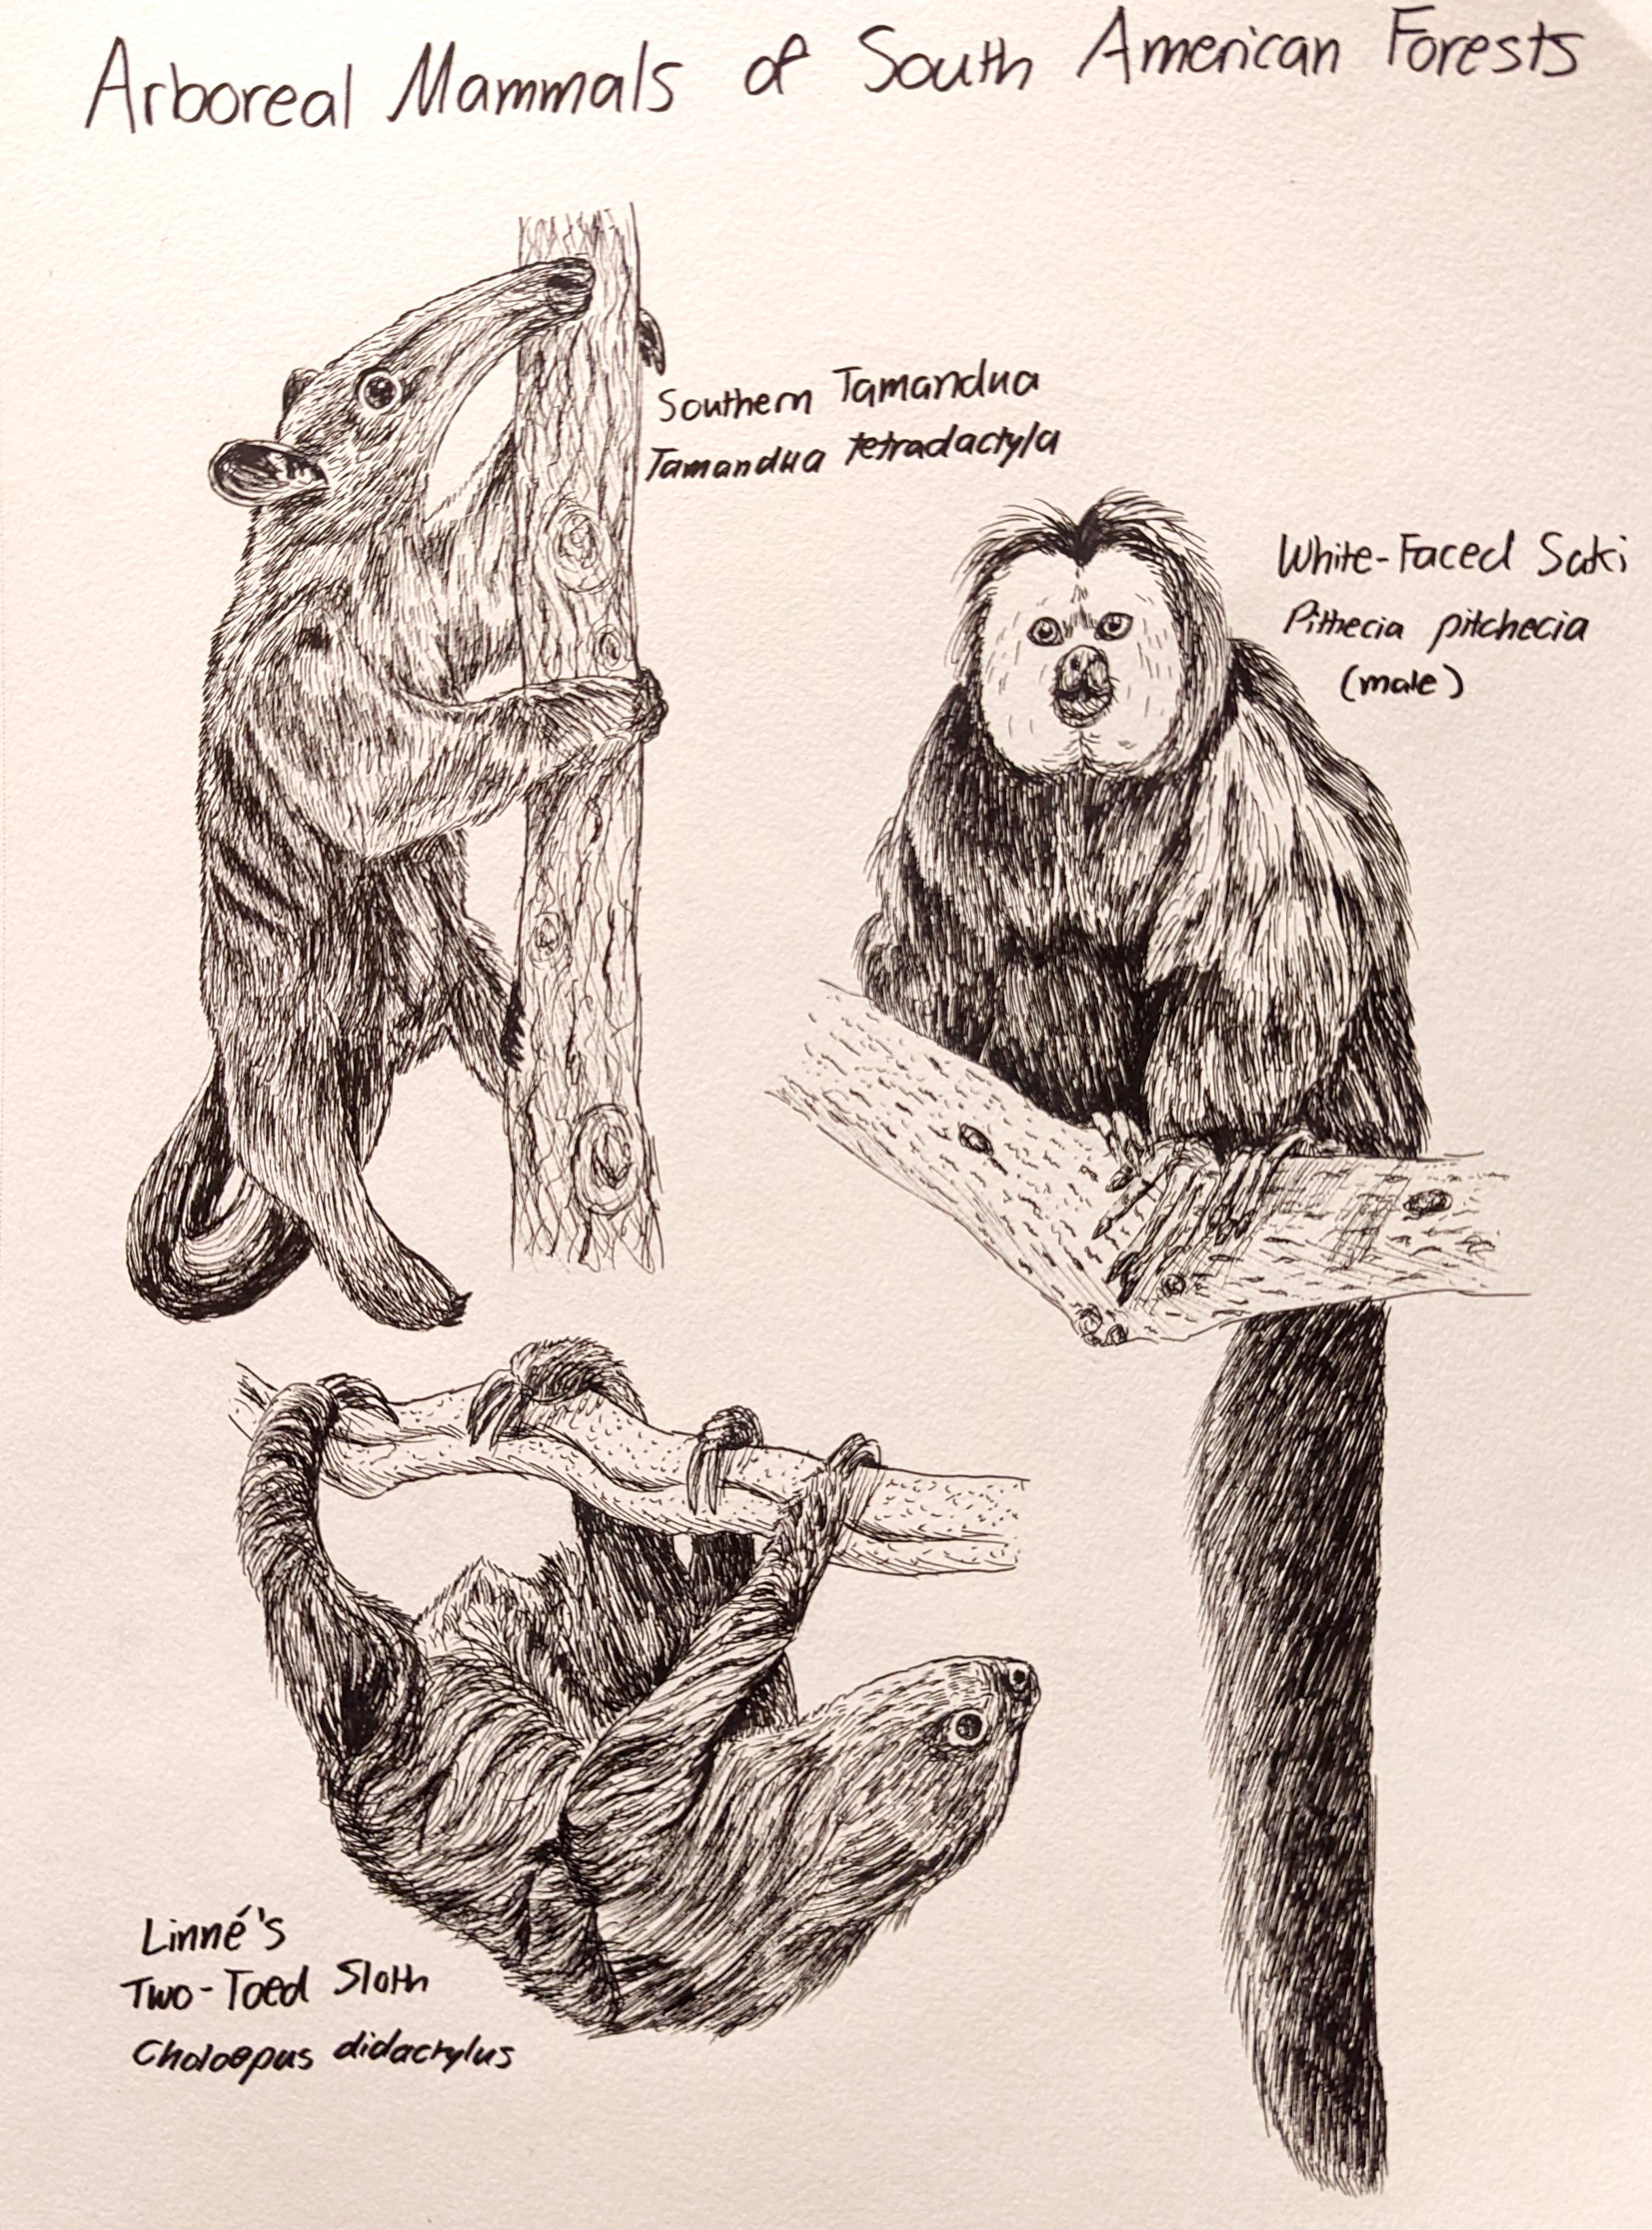 Arboreal Mammals of South American Forests
Southern Tamandua
Tamandua tetradactyla
White-Faced Saki
Pithecia pitchecia
(male)
Linné's
Two-Toed Sloth
Choloepus didactylus